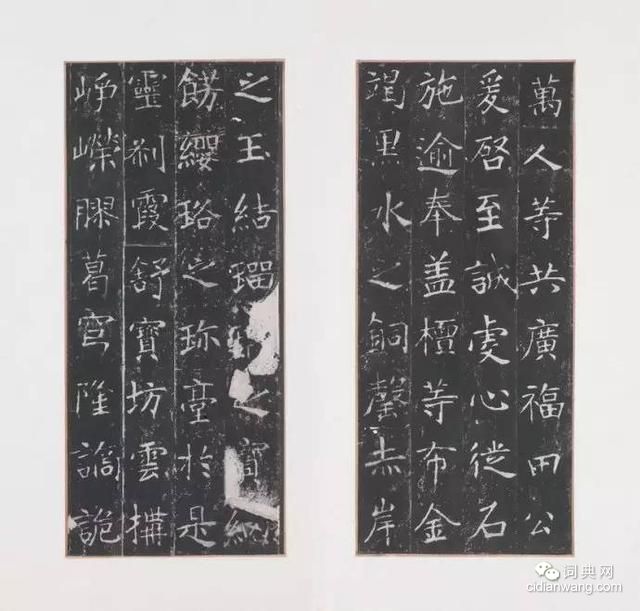 萬人等共廣福田公
爰啓至誠虔心從石
施逾奉盖檀等布金
竭黒水之銅罄赤岸
之玉結瑠之寶
餝纓珞之珎臺於是
靈刹霞舒寶坊雲構
崢嶸膠葛穹隆譎詭
词典网
cidianwang.com